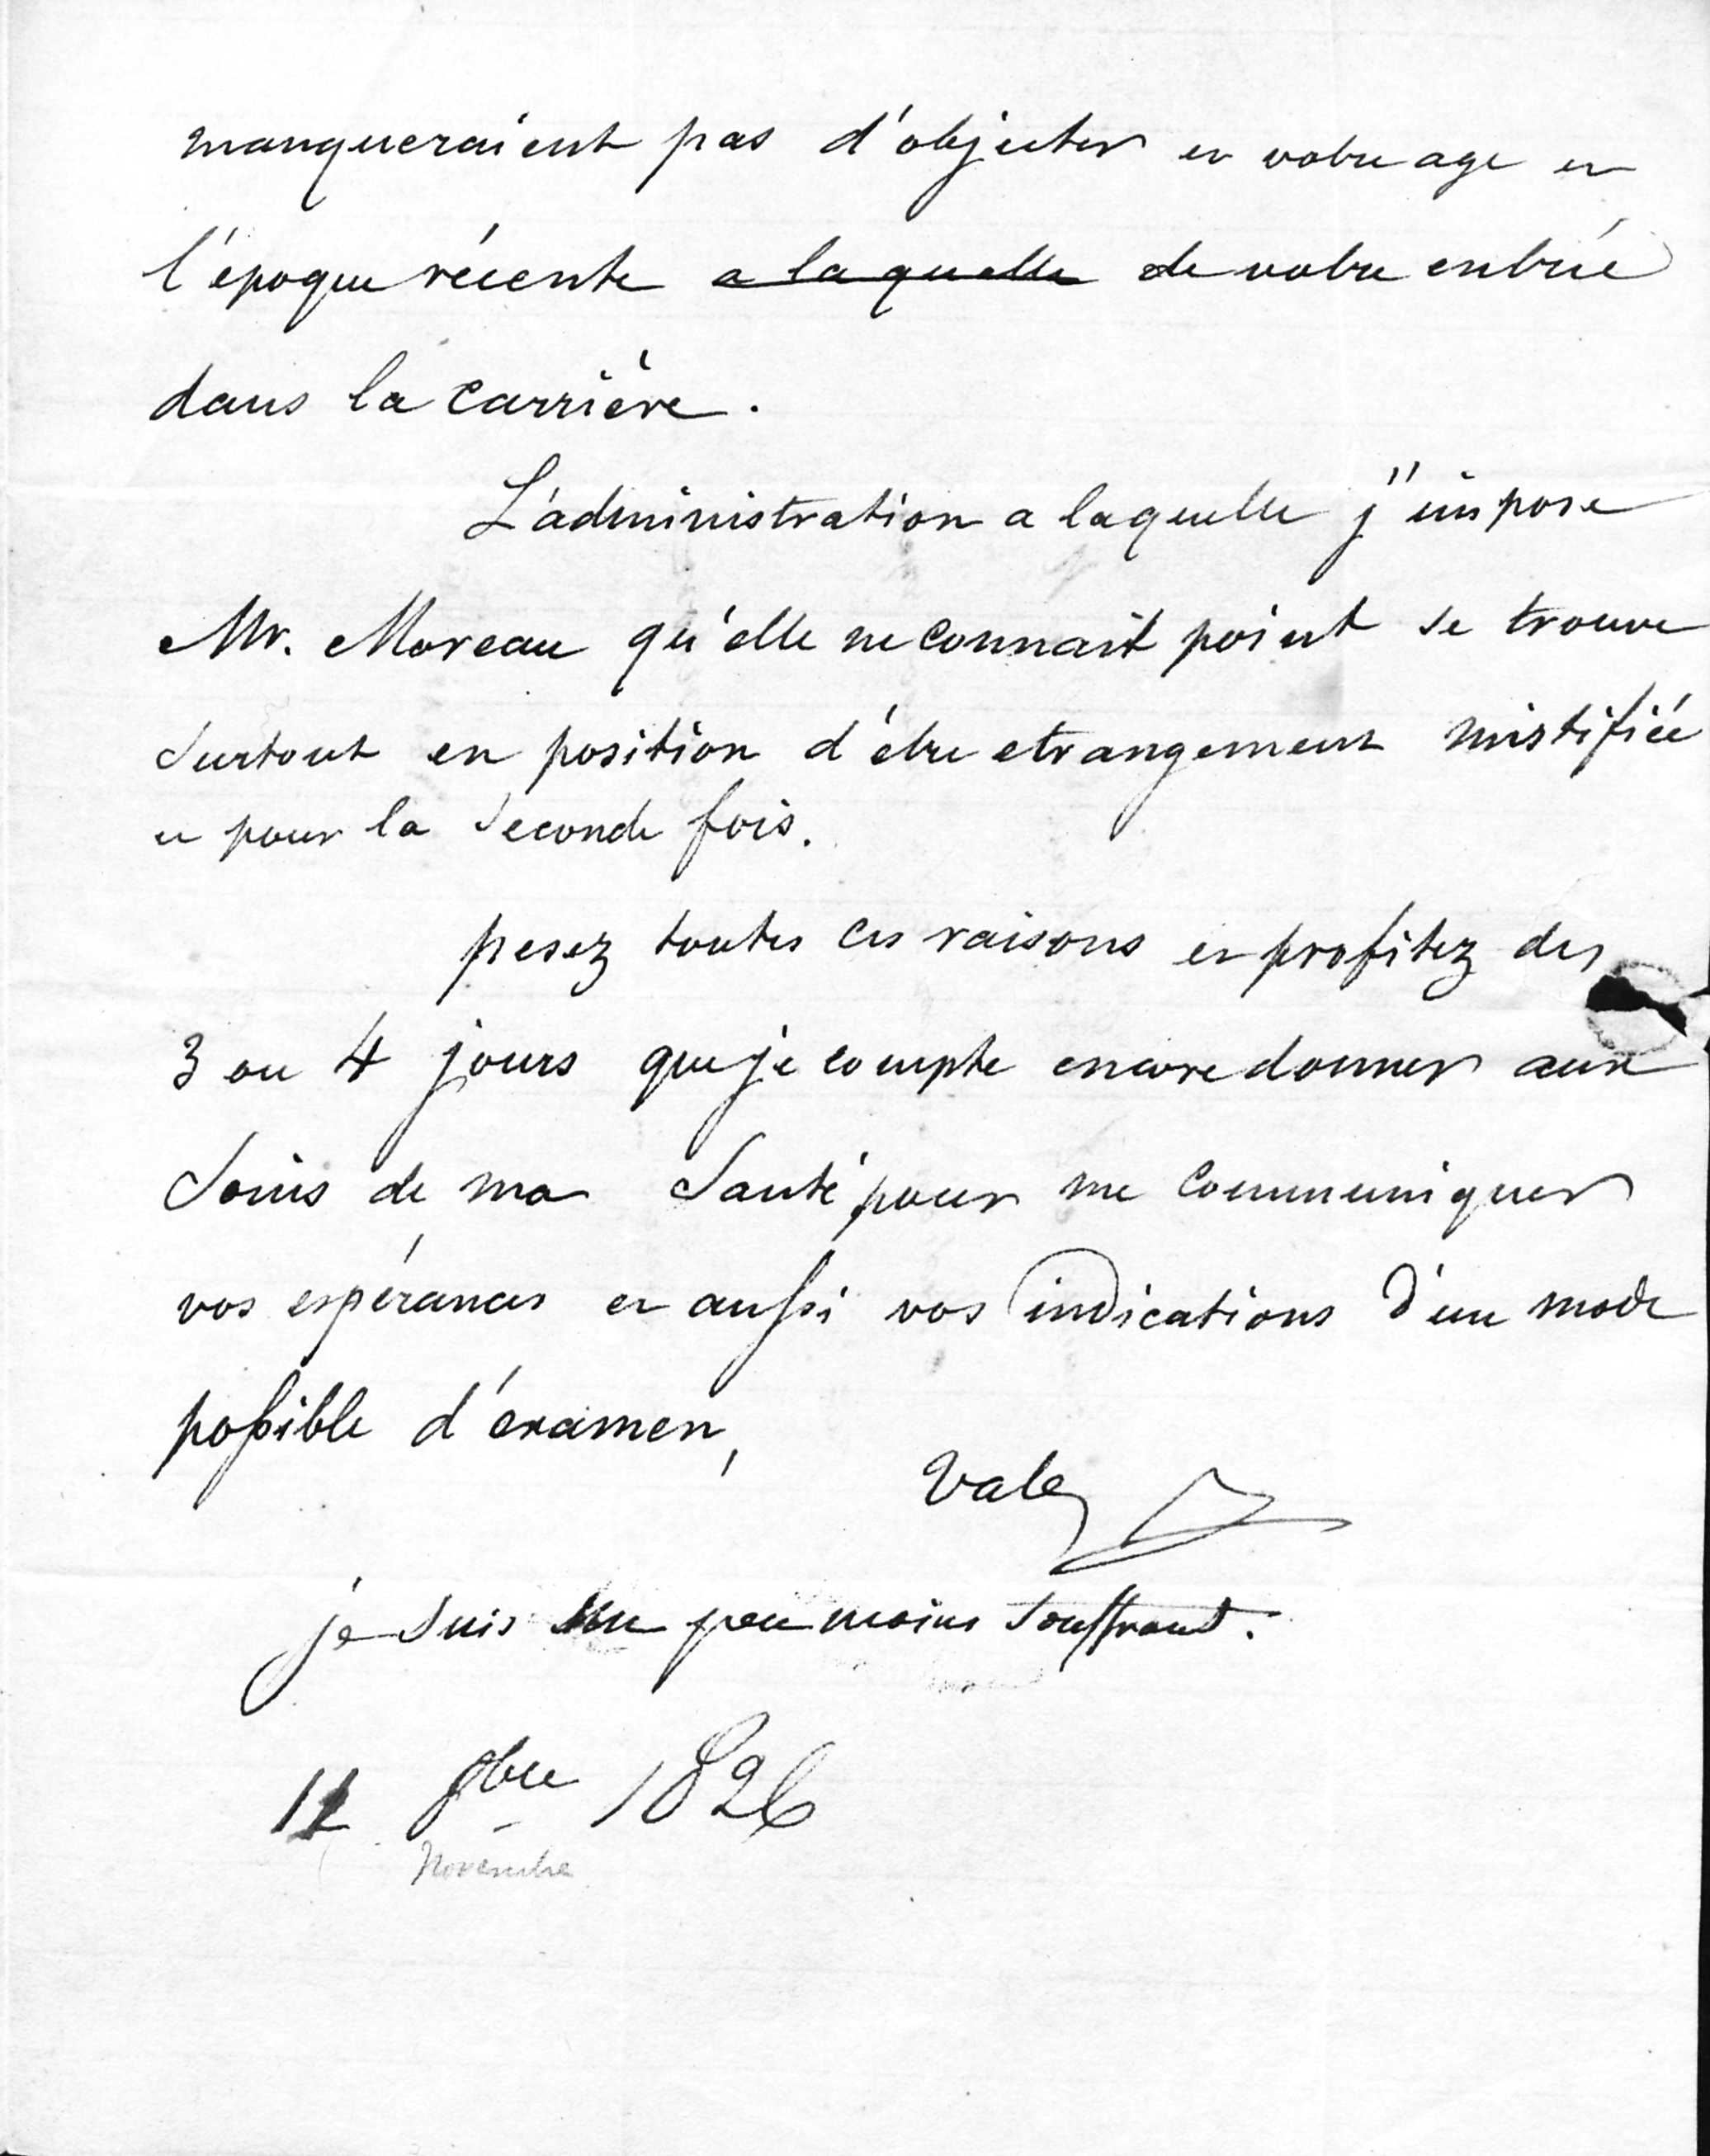 manqueraient pas d'objecter et votre age et
l'époque récente a la quelle de votre entrée
dans la carrière.
L'administration a laquelle j'impose
Mr. Moreau qu'elle ne connait point se trouve
surtout en position d'être etrangement mistifiée
et pour la seconde fois.
pesez toutes ces raisons et profitez des
3 ou 4 jours que je compte encore donner aux
soins de ma santé pour me communiquer
vos espérances et aussi vos indications d'un mode
possible d'éxamen,
Vale
je suis un peu moins souffrant.
11 9bre 1826
Novembre